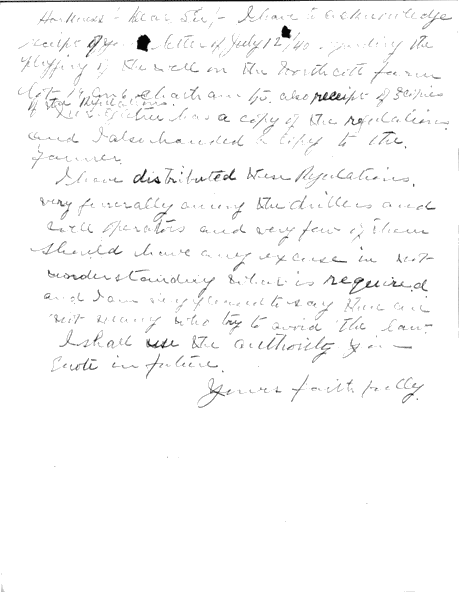 Harkness:- Dear Sir/- I have to acknowledge
receipt of your letter of July 12/40. regarding the
plugging of the well in the Northcott farm
Lot 19 Con 6 Chatham Tp. also receipt of 3 copies
of the Regulations.
has a copy of the regulations
and I also handed a copy to the
farmer.
I have distributed these Regulations.
very generally among the drillers and
well operators and very few of them
should have any excuse in not
understanding what is required
and I am very pleased to say there are
not many who try to avoid the law.
I shall use the authority you
quote in future.
Yours faithfully